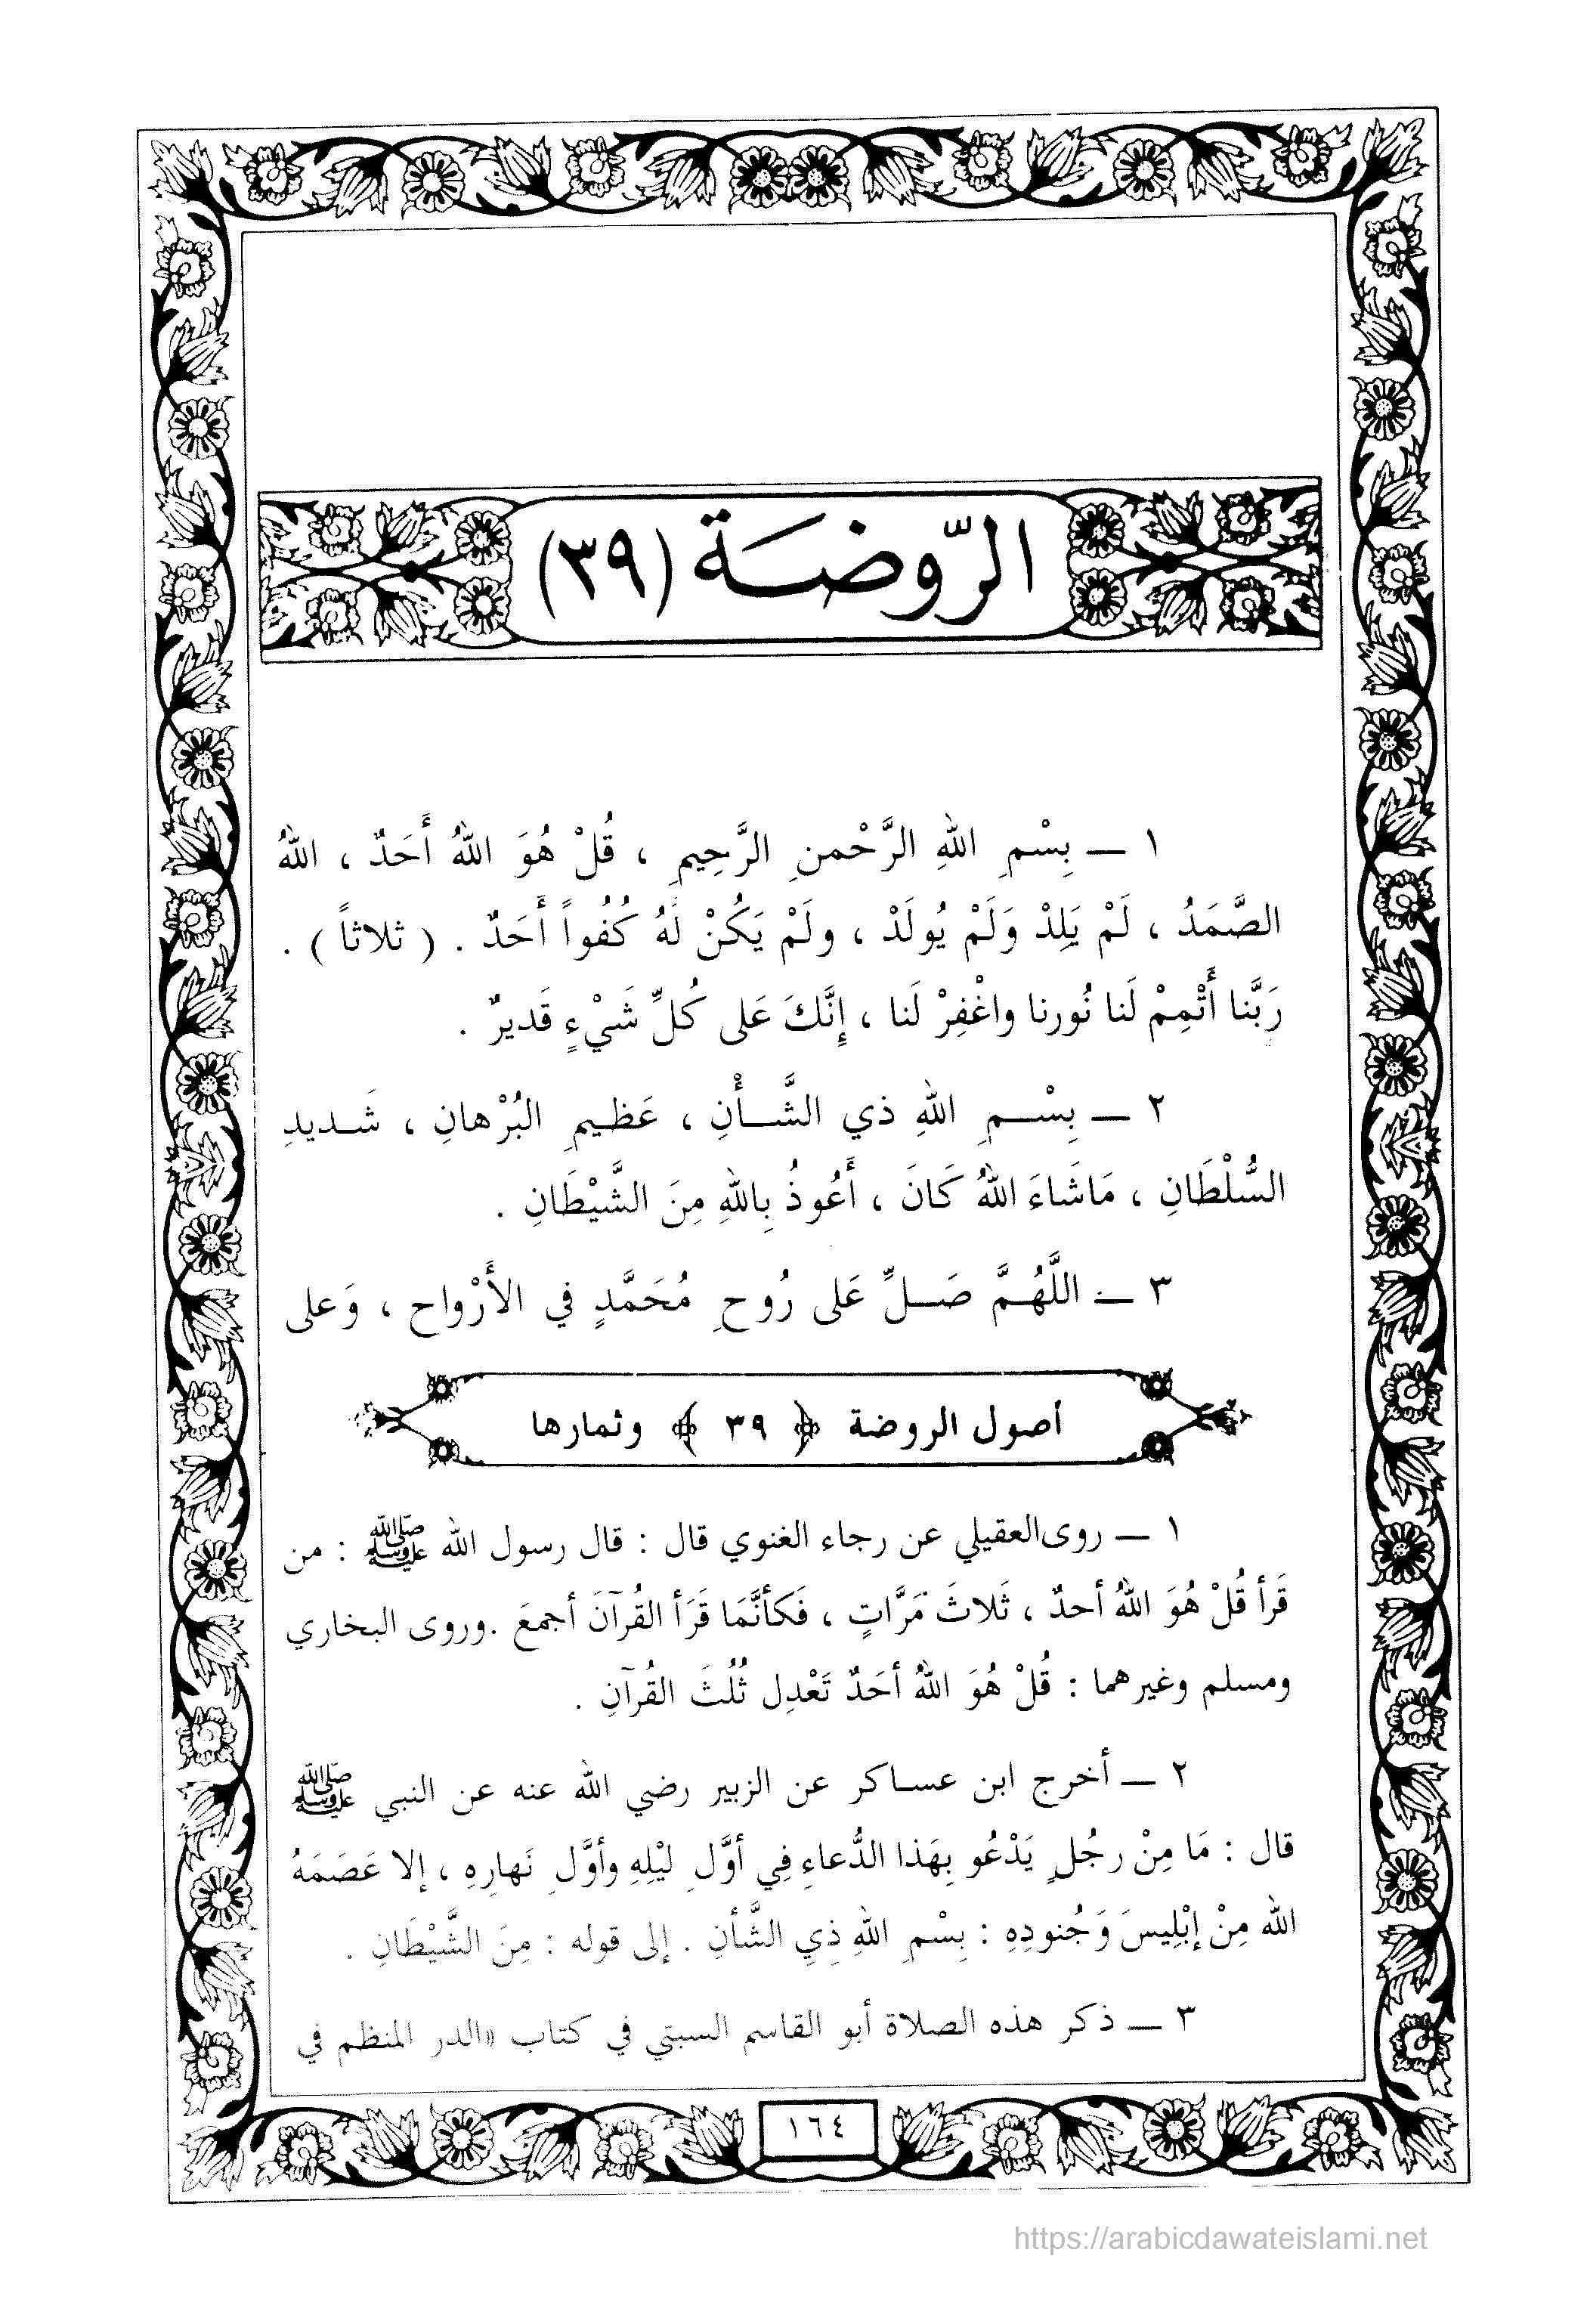 الرّوضَة (٣٩)
١ ـ بِسْمِ اللهِ الرَّحْمنِ الرَّحِيمِ ، قُلْ هُوَ اللهُ أَحَدٌ ، اللهُ
الصَّمَدُ ، لَمْ يَلِدْ وَلَمْ يُولَدْ ، ولَمْ يَكُنْ لَهُ كُفُواً أَحَدٌ . ( ثلاثاً ) .
رَبَّنا أَتْمِمْ لَنا نُورنا واغْفِرْ لَنا ، إِنَّكَ عَلى كُلِّ شَيْءٍ قَديرٌ .
٢ ـ بِسْمِ اللهِ ذي الشَّأْنِ ، عَظيمِ البُرْهانِ ، شَديدِ
السُّلْطَانِ ، مَاشَاءَ اللهُ كَانَ ، أَعُوذُ بِاللهِ مِنَ الشَّيْطَانِ .
٣ ـ اللَّهُمَّ صَلِّ عَلى رُوحِ مُحَمَّدٍ في الأَرْواح ، وَعلى
أصول الروضة ﴿ ٣٩ ﴾ وثمارها
١ ـ روى العقيلي عن رجاء الغنوي قال : قال رسول الله ﷺ : من
قَرأ قُلْ هُوَ اللهُ أحدٌ ، ثَلاثَ مَرَّاتٍ ، فَكأنَّمَا قَرَأ القُرآنَ أجمعَ .وروى البخاري
ومسلم وغيرهما : قُلْ هُوَ اللهُ أحَدٌ تَعْدِل ثُلُثَ القُرآنِ .
٢ ـ أخرج ابن عساكر عن الزبير رضي الله عنه عن النبي ﷺ
قال : مَا مِنْ رجُلٍ يَدْعُو بِهَذا الدُّعاءِ فِي أوَّلِ ليْلِهِ وأوَّلِ نَهارِهِ ، إلا عَصَمَهُ
الله مِنْ إبْلِيسَ وَجُنودِهِ : بِسْمِ اللهِ ذِي الشَّأنِ . إلى قوله : مِنَ الشَّيْطَانِ .
٣ ـ ذكر هذه الصلاة أبو القاسم السبتي في كتاب «الدر المنظم في
١٦٤
https://arabicdawateislami.net